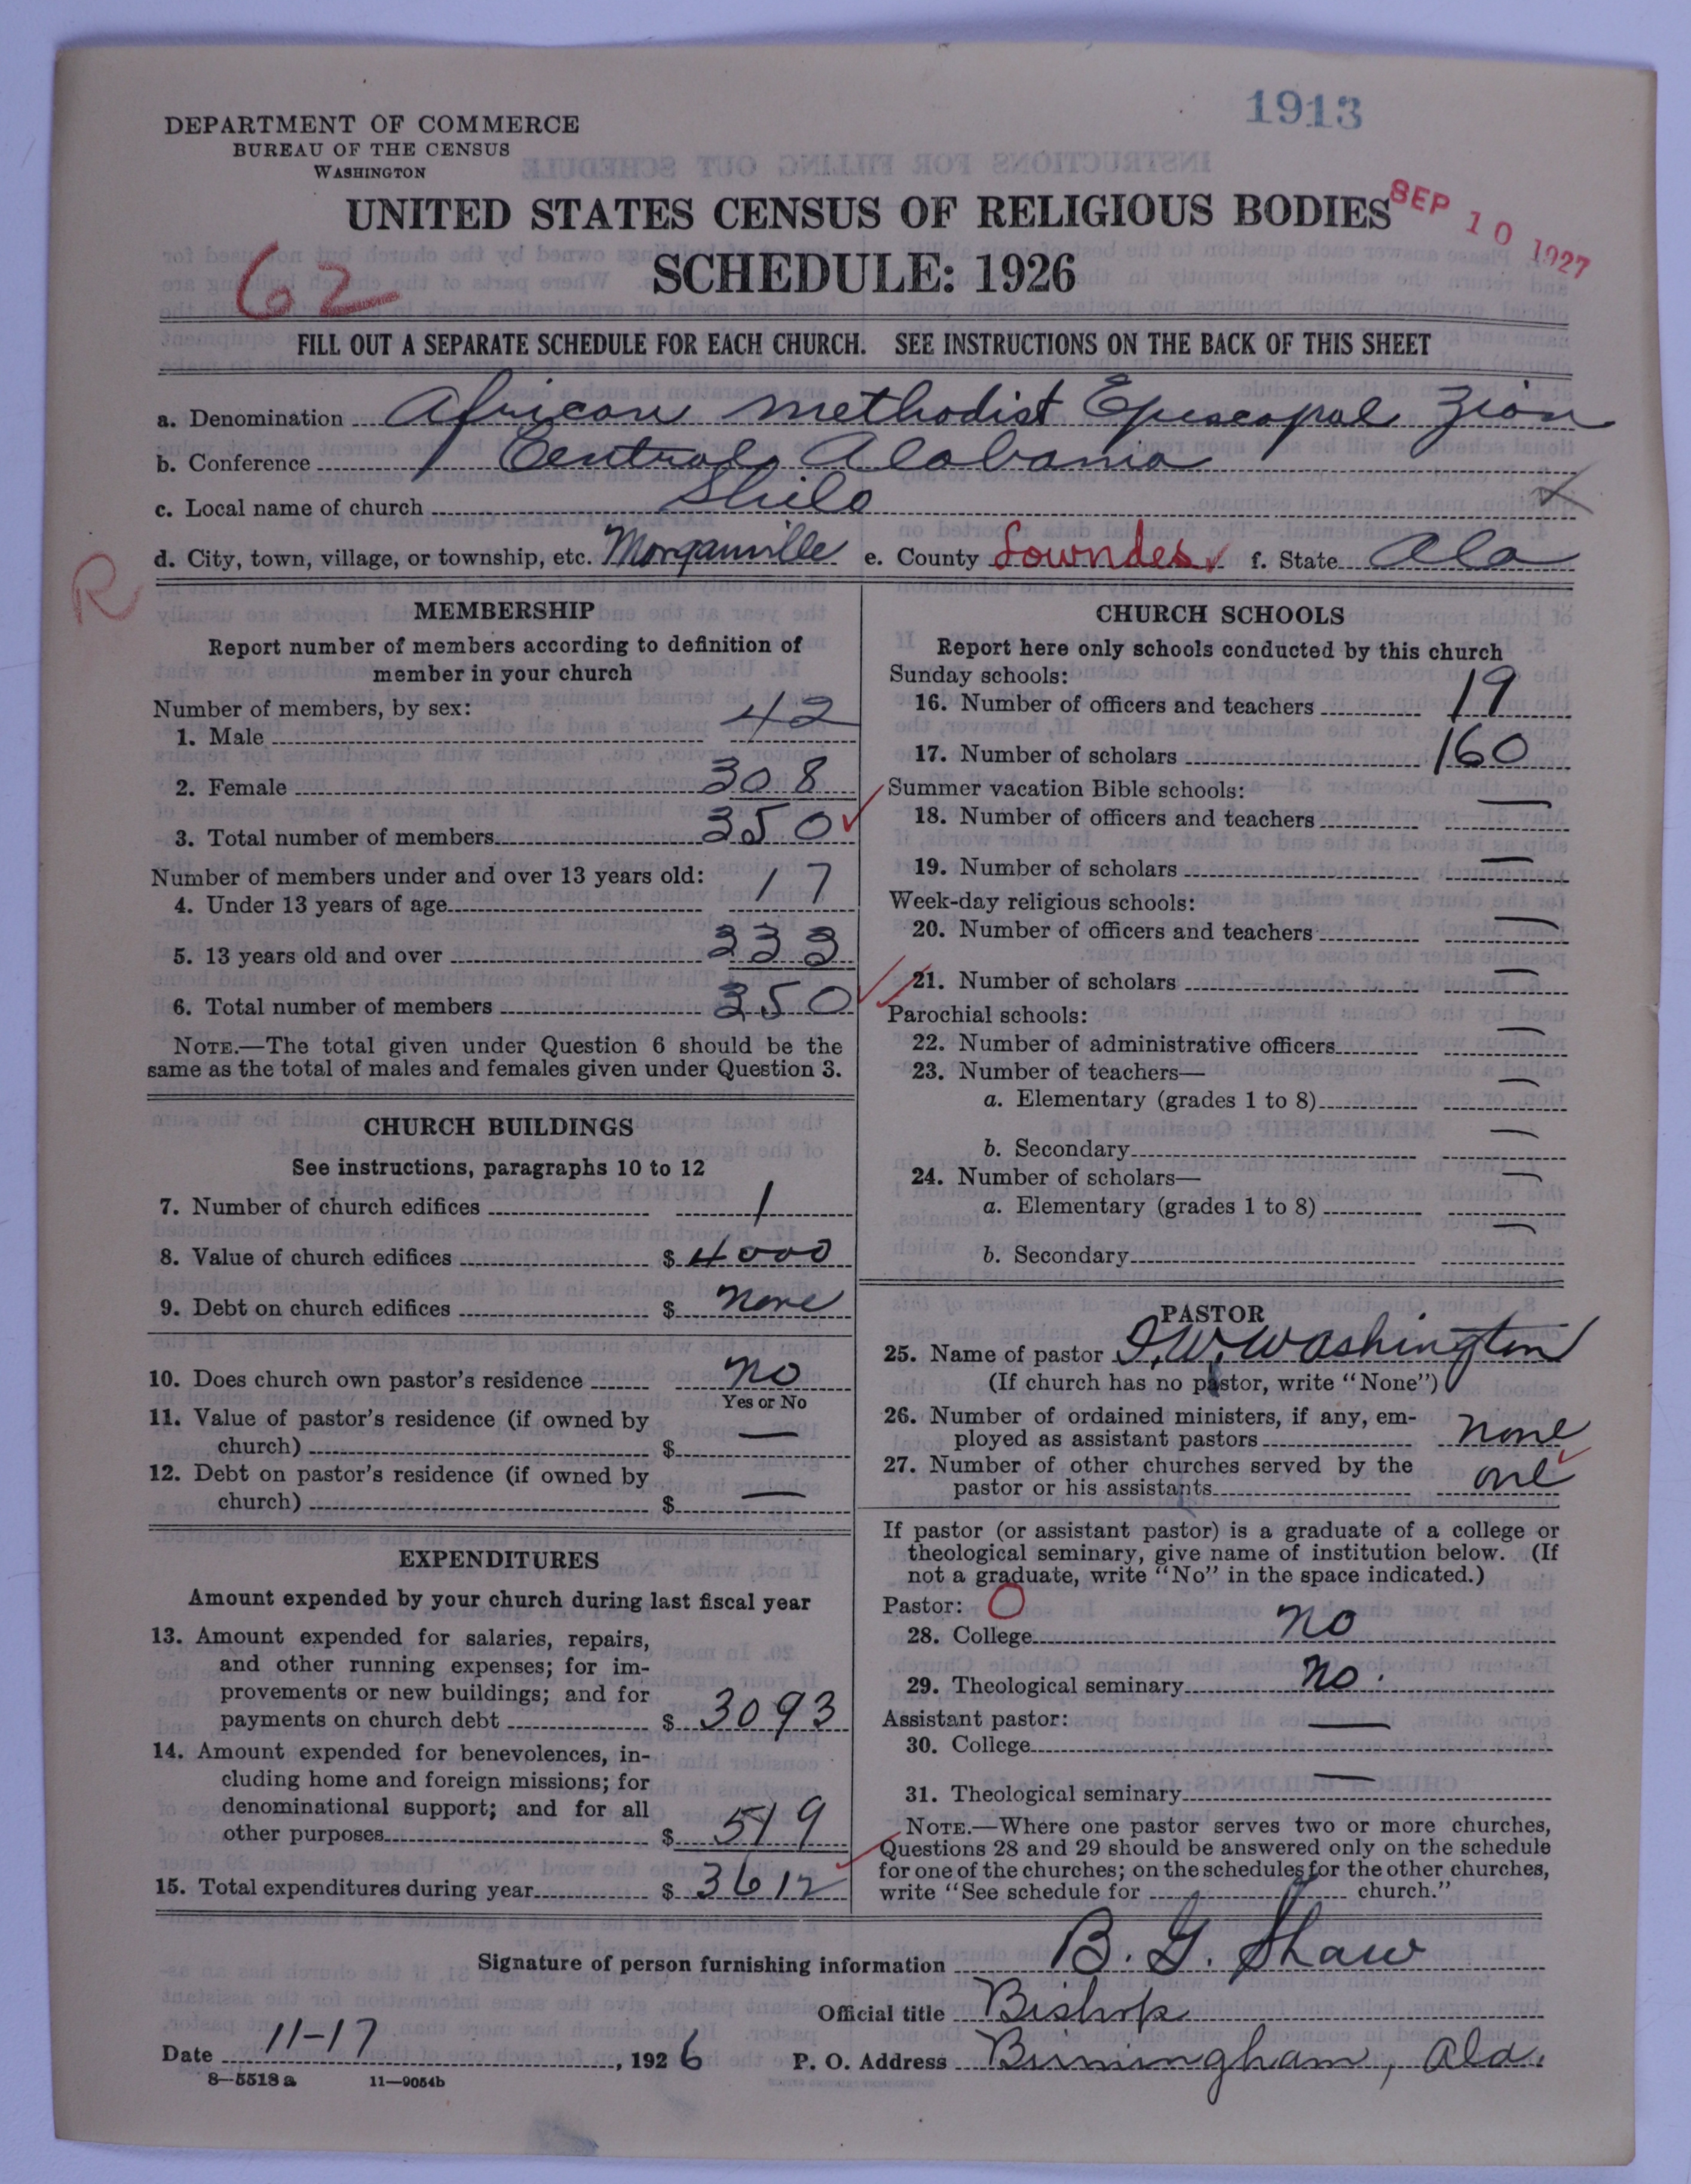 1913
DEPARTMENT OF COMMERCE
BUREAU OF THE CENSUS
WASHINGTON
UNITED STATES CENSUS OF RELIGIOUS BODIES
SEP 10 1927
62
SCHEDULE: 1926
FILL OUT A SEPARATE SCHEDULE FOR EACH CHURCH. SEE INSTRUCTIONS ON THE BACK OF THIS SHEET
a. Denomination African Methodist Episcopal Zion
b. Conference Central Alabama
c. Local name of church Shilo
d. City, town, village, or township, etc. Morganville e. County Lowndes f. State Ala
R
MEMBERSHIP
Report number of members according to definition of
member in your church
Number of members, by sex:
1. Male 42
2. Female 308
3. Total number of members 350
Number of members under and over 13 years old:
4. Under 13 years of age 17
5. 13 years old and over 333
6. Total number of members 350
NOTE.—The total given under Question 6 should be the
same as the total of males and females given under Question 3.
CHURCH BUILDINGS
See instructions, paragraphs 10 to 12
7. Number of church edifices 1
8. Value of church edifices $ 4000
9. Debt on church edifices $ none
10. Does church own pastor's residence no
Yes or No
11. Value of pastor's residence (if owned by
church) $ —
12. Debt on pastor's residence (if owned by
church) $ —
EXPENDITURES
Amount expended by your church during last fiscal year
13. Amount expended for salaries, repairs,
and other running expenses; for im-
provements or new buildings; and for
payments on church debt $ 3093
14. Amount expended for benevolences, in-
cluding home and foreign missions; for
denominational support; and for all
other purposes $ 519
15. Total expenditures during year $ 3612
CHURCH SCHOOLS
Report here only schools conducted by this church
Sunday schools:
16. Number of officers and teachers 19
17. Number of scholars 160
Summer vacation Bible schools:
18. Number of officers and teachers —
19. Number of scholars —
Week-day religious schools:
20. Number of officers and teachers —
21. Number of scholars —
Parochial schools:
22. Number of administrative officers —
23. Number of teachers—
a. Elementary (grades 1 to 8) —
b. Secondary —
24. Number of scholars—
a. Elementary (grades 1 to 8) —
b. Secondary —
PASTOR
25. Name of pastor I. W. Washington
(If church has no pastor, write "None")
26. Number of ordained ministers, if any, em-
ployed as assistant pastors none
27. Number of other churches served by the
pastor or his assistants one
If pastor (or assistant pastor) is a graduate of a college or
theological seminary, give name of institution below. (If
not a graduate, write "No" in the space indicated.)
Pastor: O
28. College no
29. Theological seminary no.
Assistant pastor:
30. College —
31. Theological seminary —
NOTE.—Where one pastor serves two or more churches,
Questions 28 and 29 should be answered only on the schedule
for one of the churches; on the schedules for the other churches,
write "See schedule for church."
Signature of person furnishing information B. G. Shaw
Official title Bishop
Date 11-17, 1926 P. O. Address Birmingham, Ala.
8—5518a 11—9054b